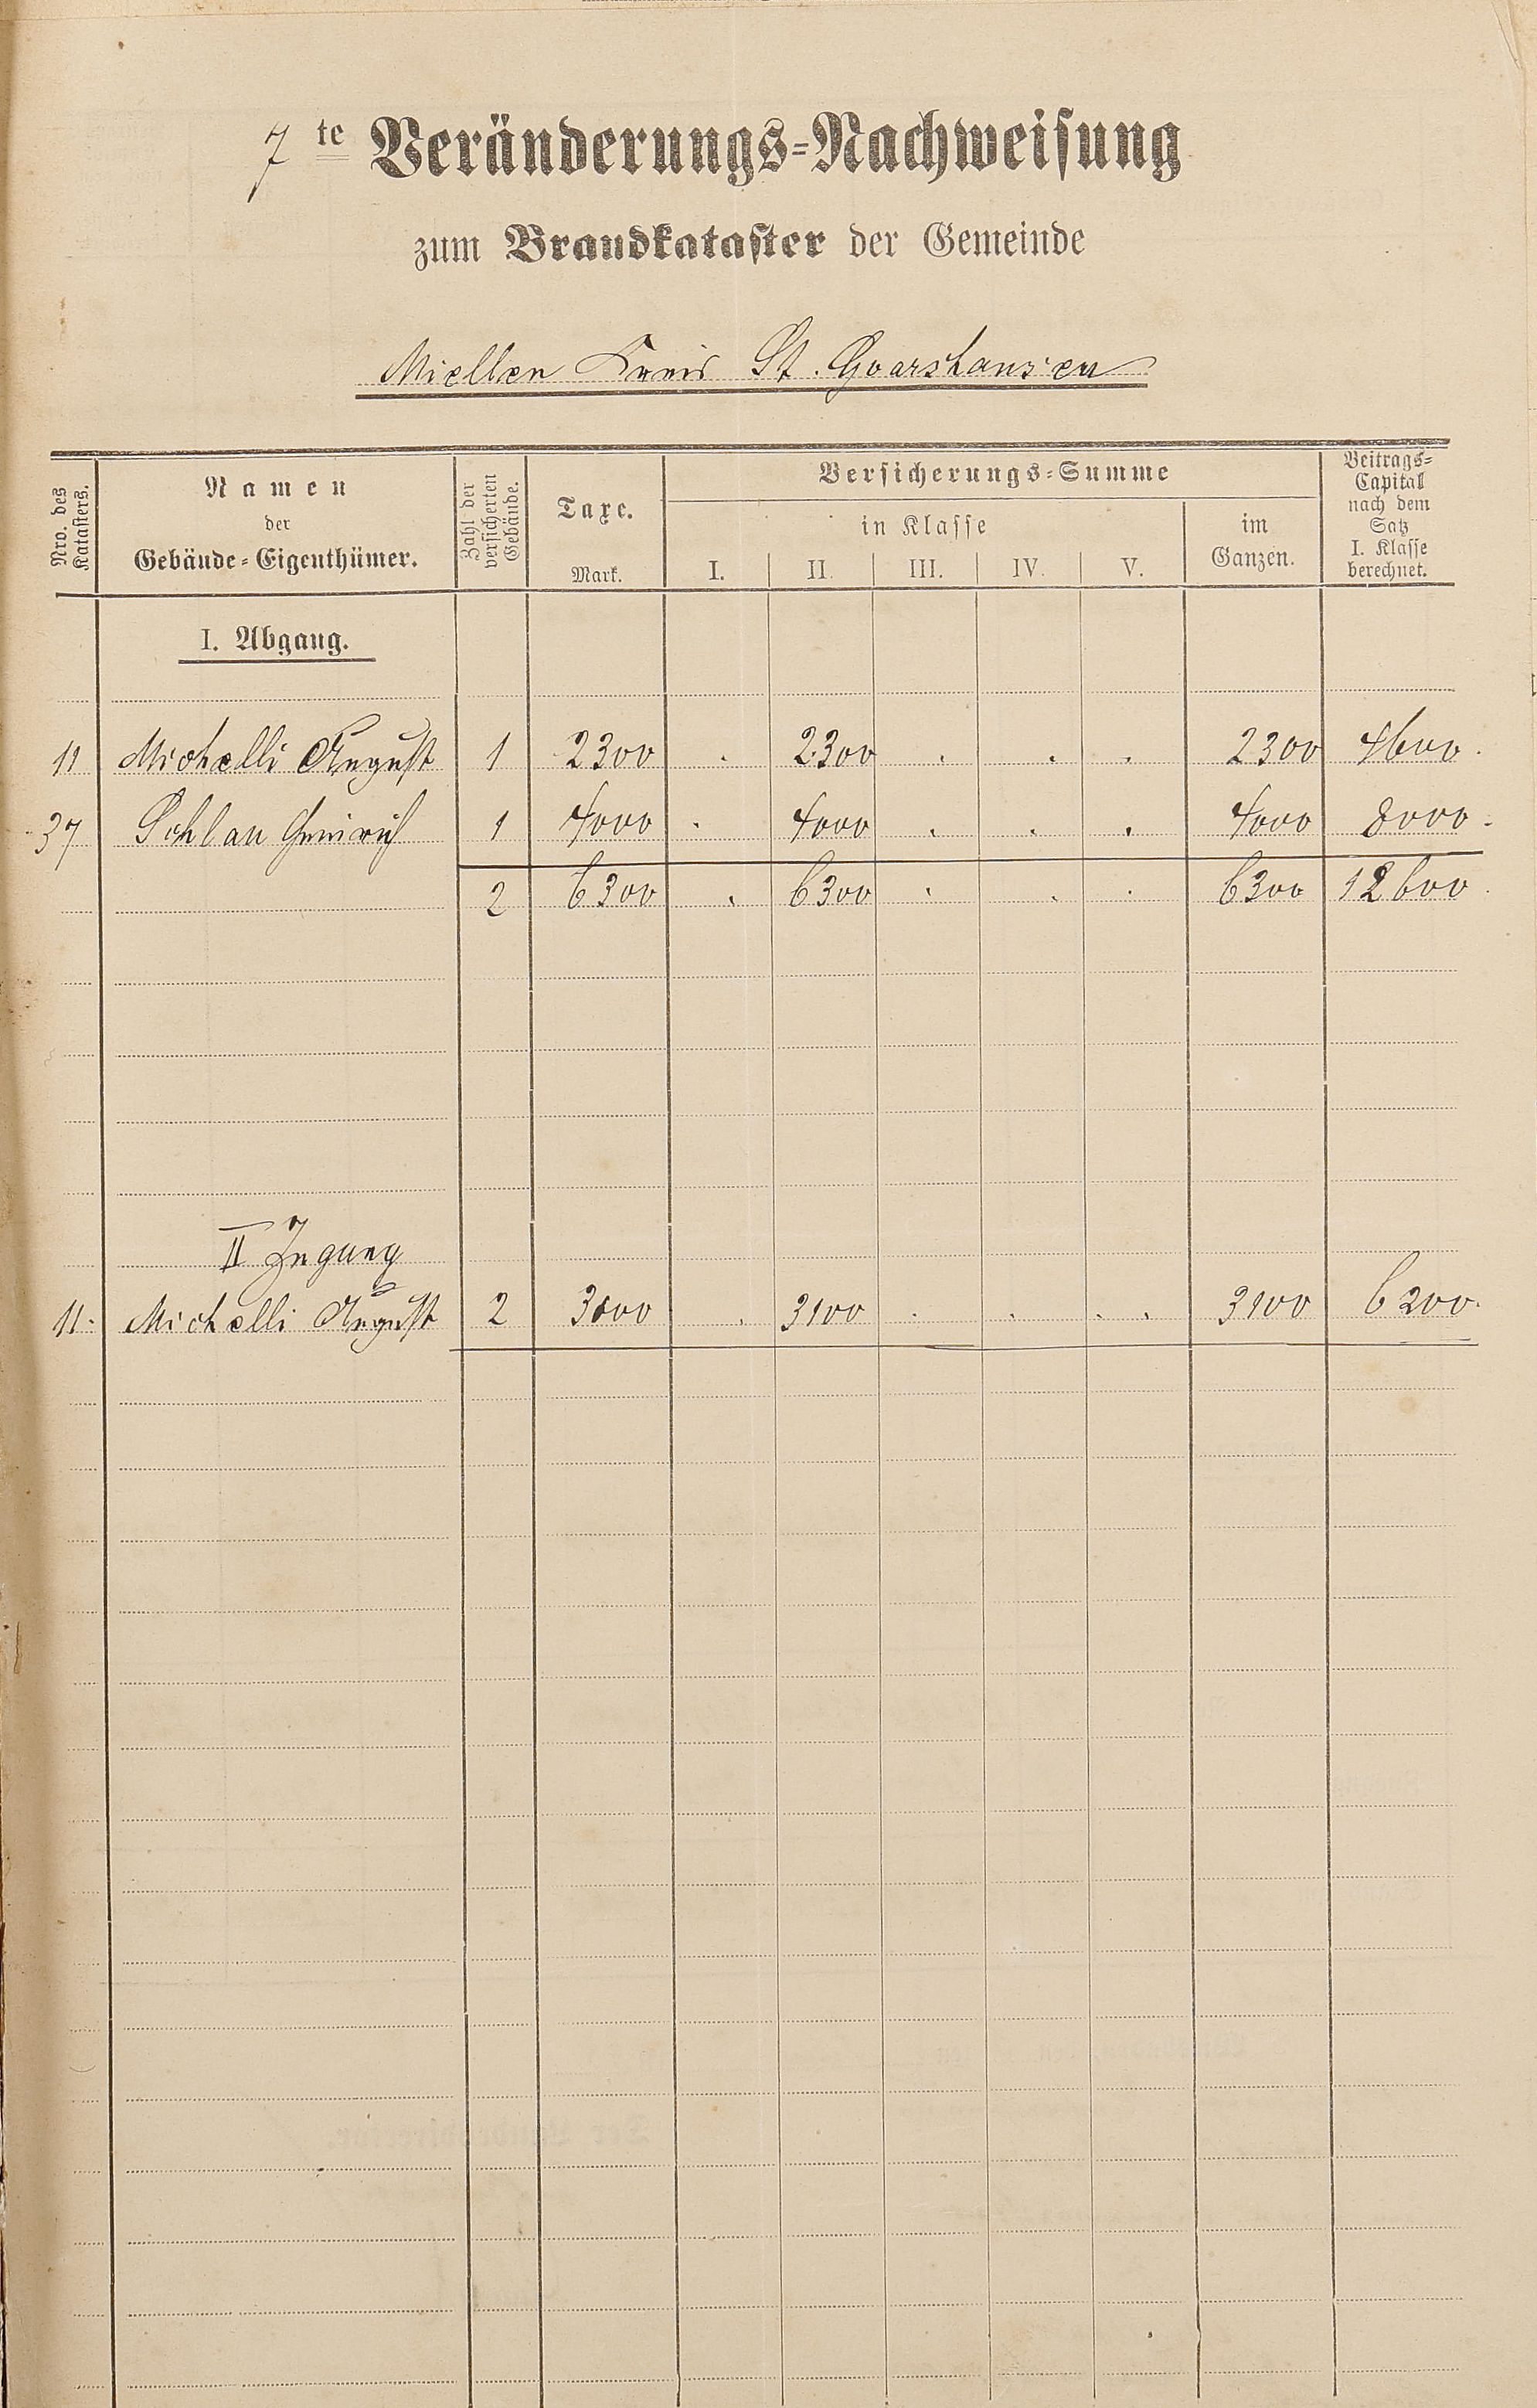 7 te Veränderungs-Nachweisung
zum Brandkataster der Gemeinde
Miellen Kreis St. Goarshausen
Nro. des Katasters.
Namen
der
Gebäude-Eigenthümer.
Zahl der versicherten Gebäude.
Taxe.
Mark.
Versicherungs-Summe
in Klasse
I. II. III. IV. V.
im
Ganzen.
Beitrags-
Capital
nach dem
Satz
I. Klasse
berechnet.
I. Abgang.
11 Michelli August 1 2300 . 2300 . . . 2300 4600.
37 Schlau Heinrich 1 4000 . 4000 . . . 4000 8000.
2 6300 . 6300 . . . 6300 12600.
II Zugang
11. Michelli August 2 3100 . 3100 . . . . 3100 6200.